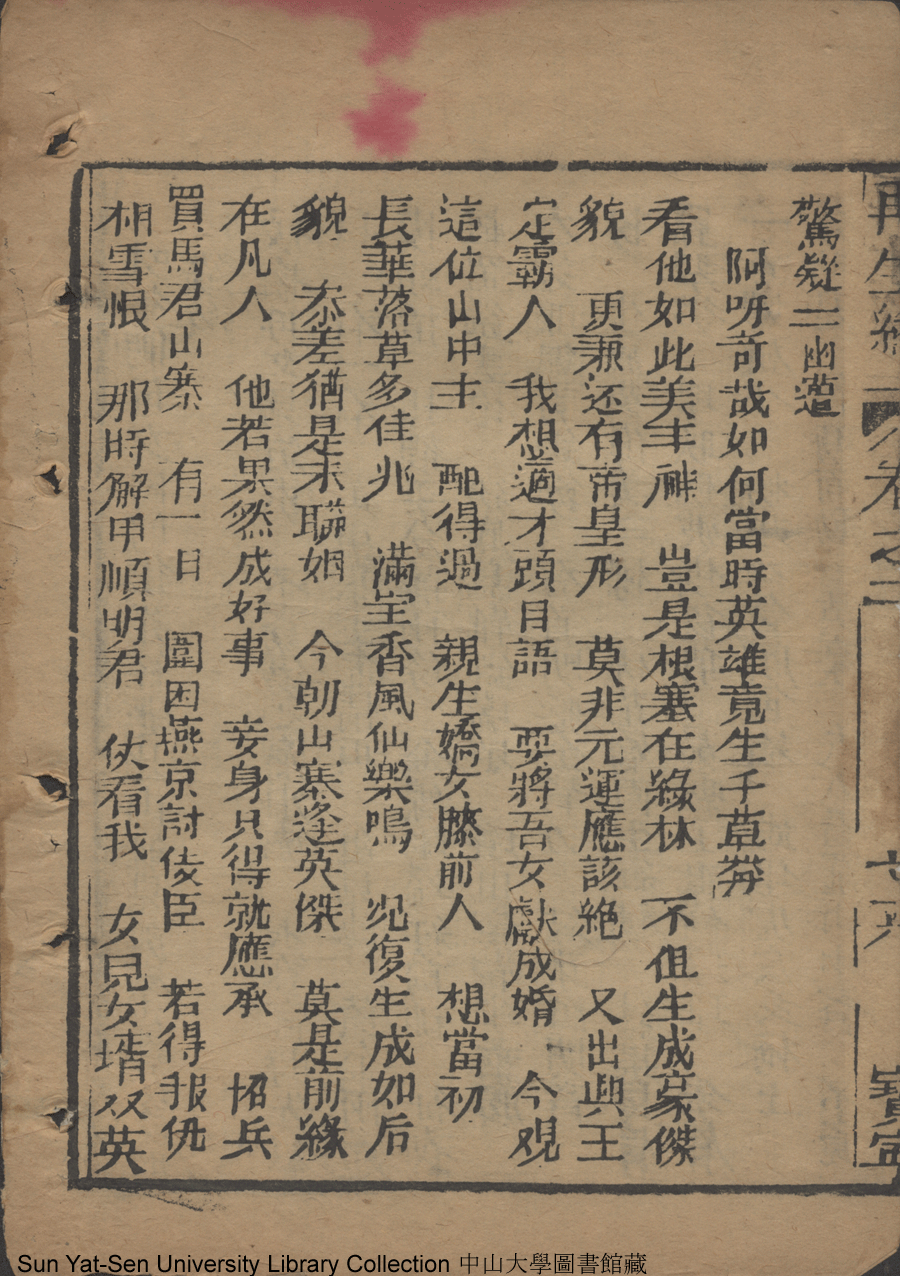 再生緣 卷之二 寶寧
驚疑二幽遭
阿呀奇哉如何當時英雄竟生千草莽
看他如此美丰神 豈是根基在綠林 不但生成豪傑
貌 更兼还有帝皇形 莫非元運應該絕 又出興王
定霸人 我想適才頭目語 要將吾女獻成婚 今观
這位山中主 配得過 親生嬌女膝前人 想當初
長華落草多佳兆 滿室香風仙樂鳴 况復生成如后
貌 叅差猶是未聯姻 今朝山寨逢英傑 莫是前緣
在凡人 他若果然成好事 妾身只得就應承 招兵
買馬君山寨 有一日 圍困燕京討佞臣 若得报仇
相雪恨 那時解甲順明君 仗看我 女兒女壻双英
Sun Yat-Sen University Library Collection 中山大學圖書館藏